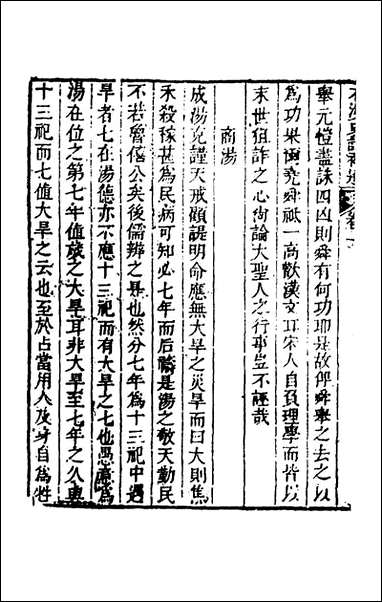 舉元愷盡誅四凶則舜有何功耶是故俾舜舉之去之以
為功果爾堯舜祗一高歡漢文耳宋人自負理學而皆以
末世狙詐之心尚論大聖人之行事豈不誣哉
商湯
成湯克謹天戒顧諟明命應無大旱之災旱而曰大則焦
禾殺稼甚為民病可知必七年而后禱是湯之敬天勤民
不若魯僖公矣後儒辨之是也然分七年為十三祀中遇
旱者七在湯德亦不應十三祀而有大旱之七也愚意為
湯在位之第七年值歲之大旱耳非大旱至七年之久與
十三祀而七值大旱之云也至於占當用人及身自為牲